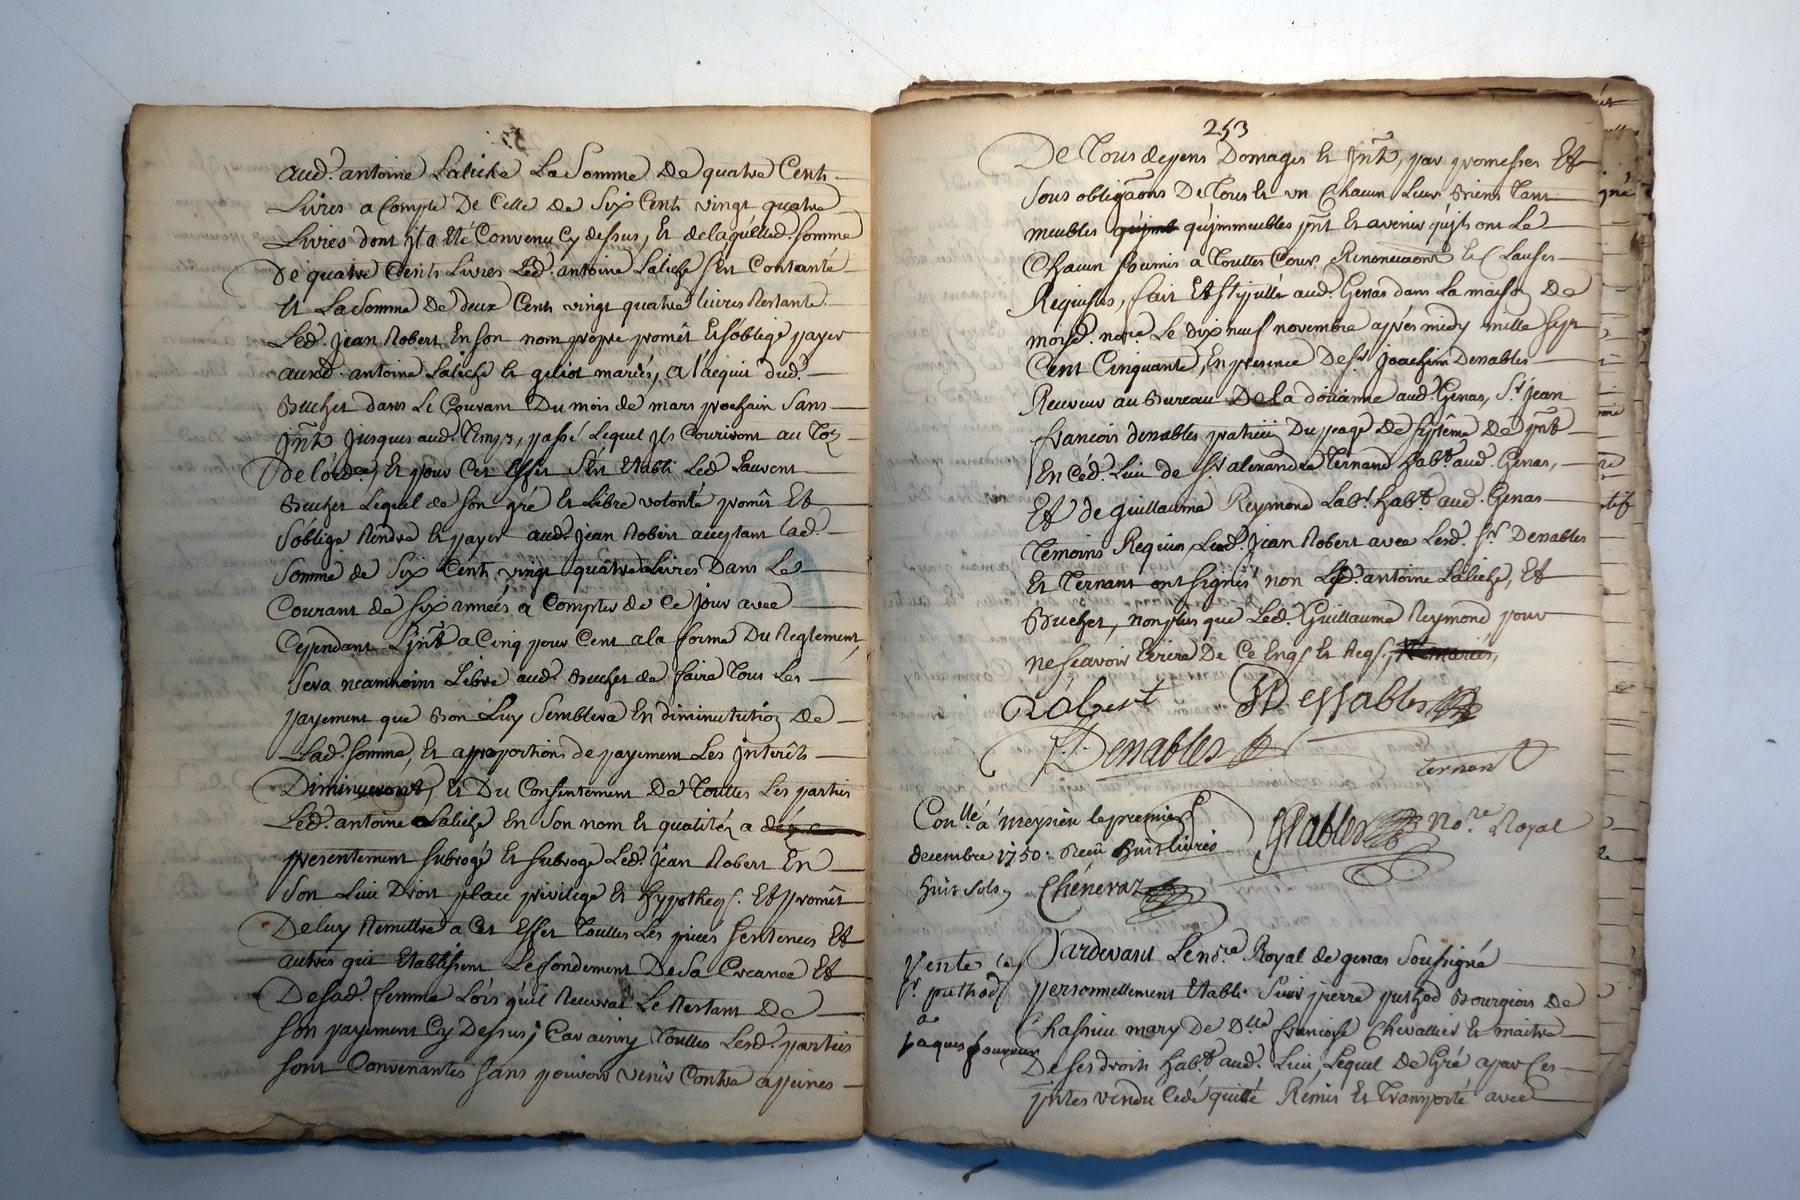 aud. antoine Laliche La Somme de quatre Cents
Livres a Compte De Celle de Six Cents vingt quatre
Livres dont il a été Convenu Cy dessus, Et delaquelled. Somme
De quatre Cents Livres Led. antoine Laliche s'en Contante
Et La Somme De deux Cents vingt quatre livres Restante
Led. Jean Robert En son nom propre promêt Et s'oblige payer
auxd. antoine Laliche Et giliot mariés, a l'acquit dud.
Buchet dans Le Courant Du mois de mars prochain Sans
jnt. jusques aud. Temps, passé Lequel jls Courront au Tos
De l'ord.ce, Et pour Cet Effet s'Est Etabli Led. Laurent
Buchet Lequel de son gré Et Libre volonté promêt Et
s'oblige Rendre Et payer aud. Jean Robert acceptant Lad.
Somme de Six Cents vingt quatre Livres Dans Le
Courant de six années a Compter de Ce jour avec
Cependant L'jnt. a Cinq pour Cent a la forme Du Reglement,
sera neammoins Libre aud. Buchet de faire Tous Les
payement que Bon Luy Semblera En diminutution De
Lad. Somme, Et a proportions de payement Les jnterêts
Diminueront, Et Du Consentement De Touttes Les parties
Led. antoine Laliche En Son nom Et qualités a
presentement subrogé Et subroge Led. Jean Robert En
Son Lieu Droit place privilege Et hypotheq. Et promêt
De luy Remettre a Cet Effet Touttes Les pieces sentences Et
autres qui Etablissent Le fondement De Sa Creance Et
De sad. femme Lors qu'il Recevra Le Restant De
son payement Cy Dessus; Car ainsy Touttes Lesd. parties
sont Convenantes sans pouvoir venir Contre a peines
253
De Tous depens Domages Et jnts, par promesses Et
sous obligaons De Tous Et un Chacun Leurs Biens Tant
meubles qu'jmmeubles pnt Et avenir qu'ils ont Le
Chacun soumis a Touttes Cours Renonciaons Et Clauses
Requises, fait Et stipullé aud. Genas dans La maison De
moisd. nore. Le dix neuf novembre après midy mille sept
Cent Cinquante, En presence De sr. Joachim Denables
Receveur au Bureau De la doüanne aud. Genas, Sr. jean
francois denables Du peage De septême De pnt
En Céd. Lieu de sr. alexandre Ternand habt. aud. Genas,
Et de guillaume Reymond Labr. habt. aud. Genas
Temoins Requis, Led. Jean Robert avec Lesd. srs. Denables
Et Ternant ont signés non Led. antoine Laliche, Et
Buchet, non plus que Led. Guillaume Reymond pour
ne scavoir Ecrire De Ce Enqs. Et Reqs.
Robert
Denables
ternant
no.re Royal
Conllé a meysieu le premier
decembre 1750. Receu huit livres
huit sols
Chéneraz
Vente
sr. puthod
a
jaques
Pardevant Le no.re Royal de genas soussigné
personnellement Etabli Sieur pierre puthod Bourgeois de
Chassieu mary De Dlle. francoise Chevallier Et maitre
De ses droits habt. aud. Lieu, Lequel De Gré a par Ces
pntes vendu Cédé quitté Rémis Et Transporté avec